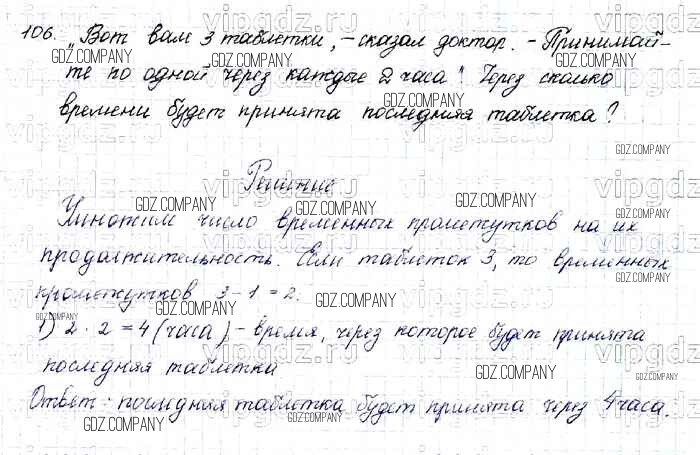 106. „Вот вам 3 таблетки, – сказал доктор. – Принимай-
те по одной через каждые 2 часа". Через сколько
времени будет принята последняя таблетка?
Решение.
Умножим число временных промежутков на их
продолжительность. Если таблеток 3, то временных
промежутков 3-1=2.
1) 2 · 2 = 4 (часа) – время, через которое будет принята
последняя таблетка
Ответ: последняя таблетка будет принята через 4 часа.
vipgdz.ru
GDZ.COMPANY